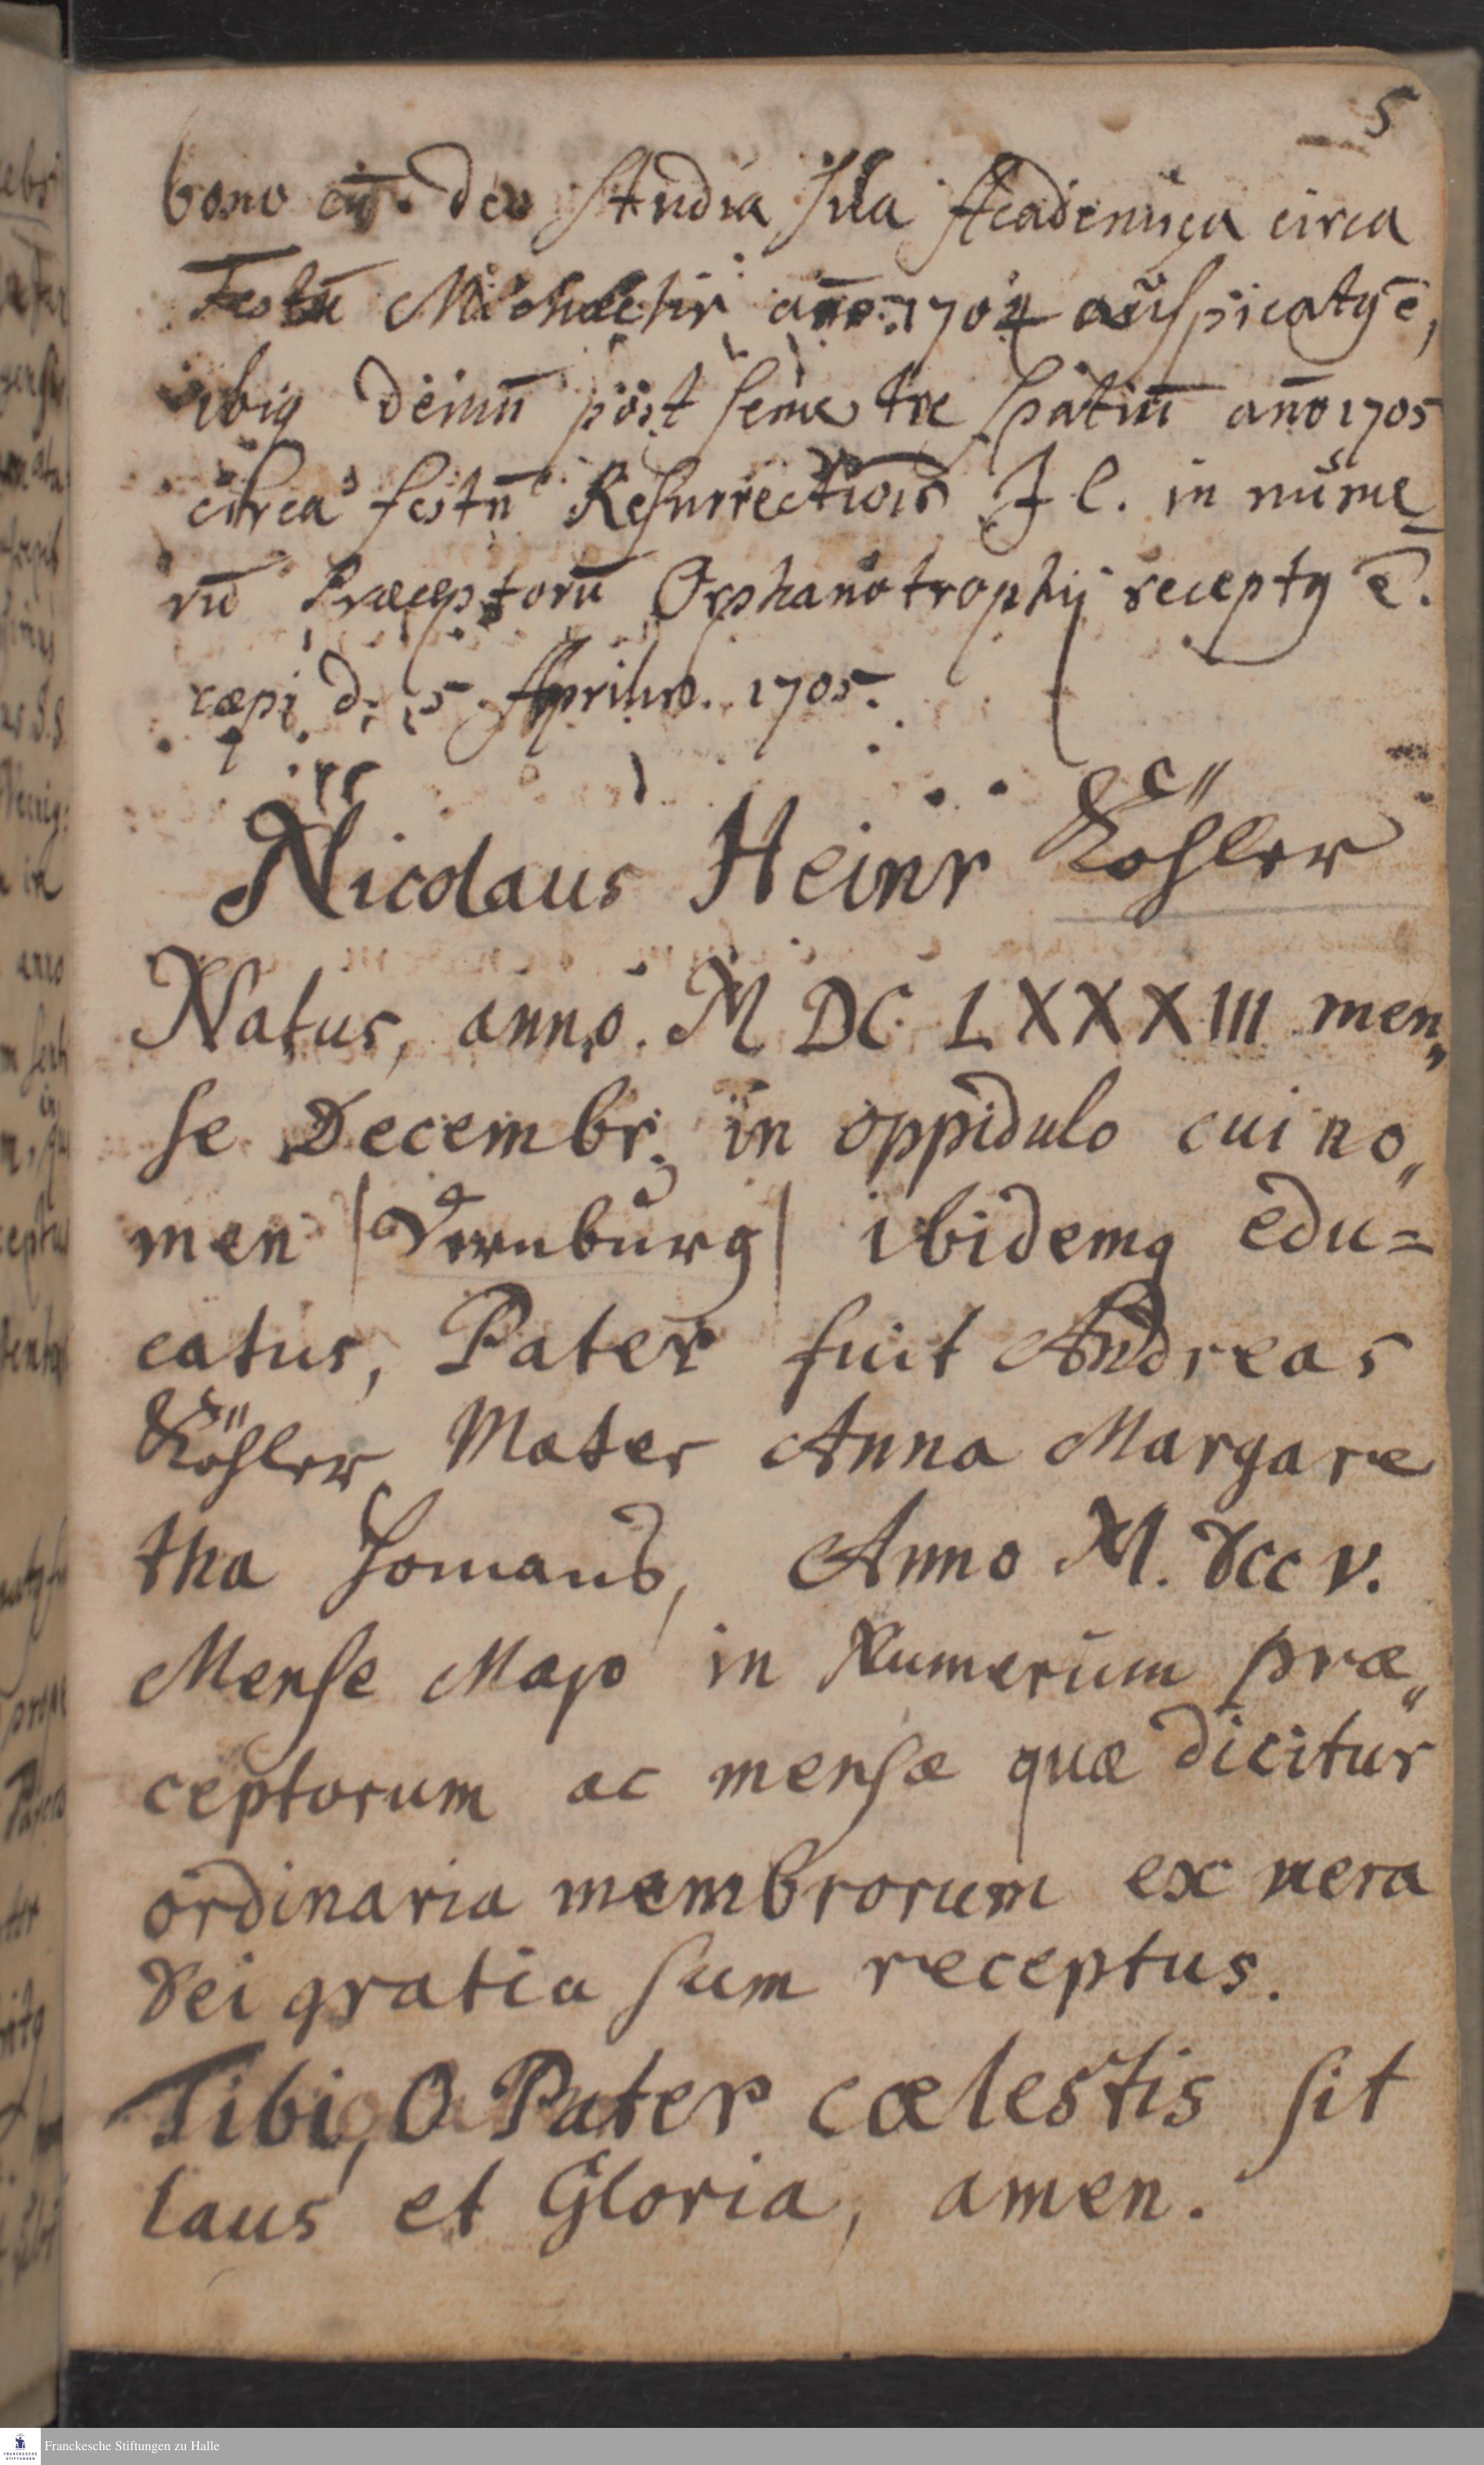 5
bono cū Deo studia sua Academica circa
Festū Michaelis año: 1704 auspicatꝰ ē,
ibiq demū post semestre spatiū año 1705
circa festū Resurrectiois J C. in nume
rū Præceptorū Orphanotrophij receptꝰ ē.
cæpi d. 5 Aprilis. 1705.
Nicolaus Heinr Köhler
Natus, anno. M DC LXXXIII men„
se Decembr. in oppidulo cui no„
men | Vernburg | ibidemq edu=
catus, Pater fuit Andreas
Köhler Mater Anna Margare
tha Homans, Anno M. Dcc V.
Mense Majo in Numerum præ„
ceptorum ac mensæ quæ dicitur
ordinaria membrorum ex mera
Dei gratia sum receptus.
Tibi, O Pater cælestis sit
laus et Gloria, amen.
FRANCKESCHE STIFTUNGEN
Franckesche Stiftungen zu Halle